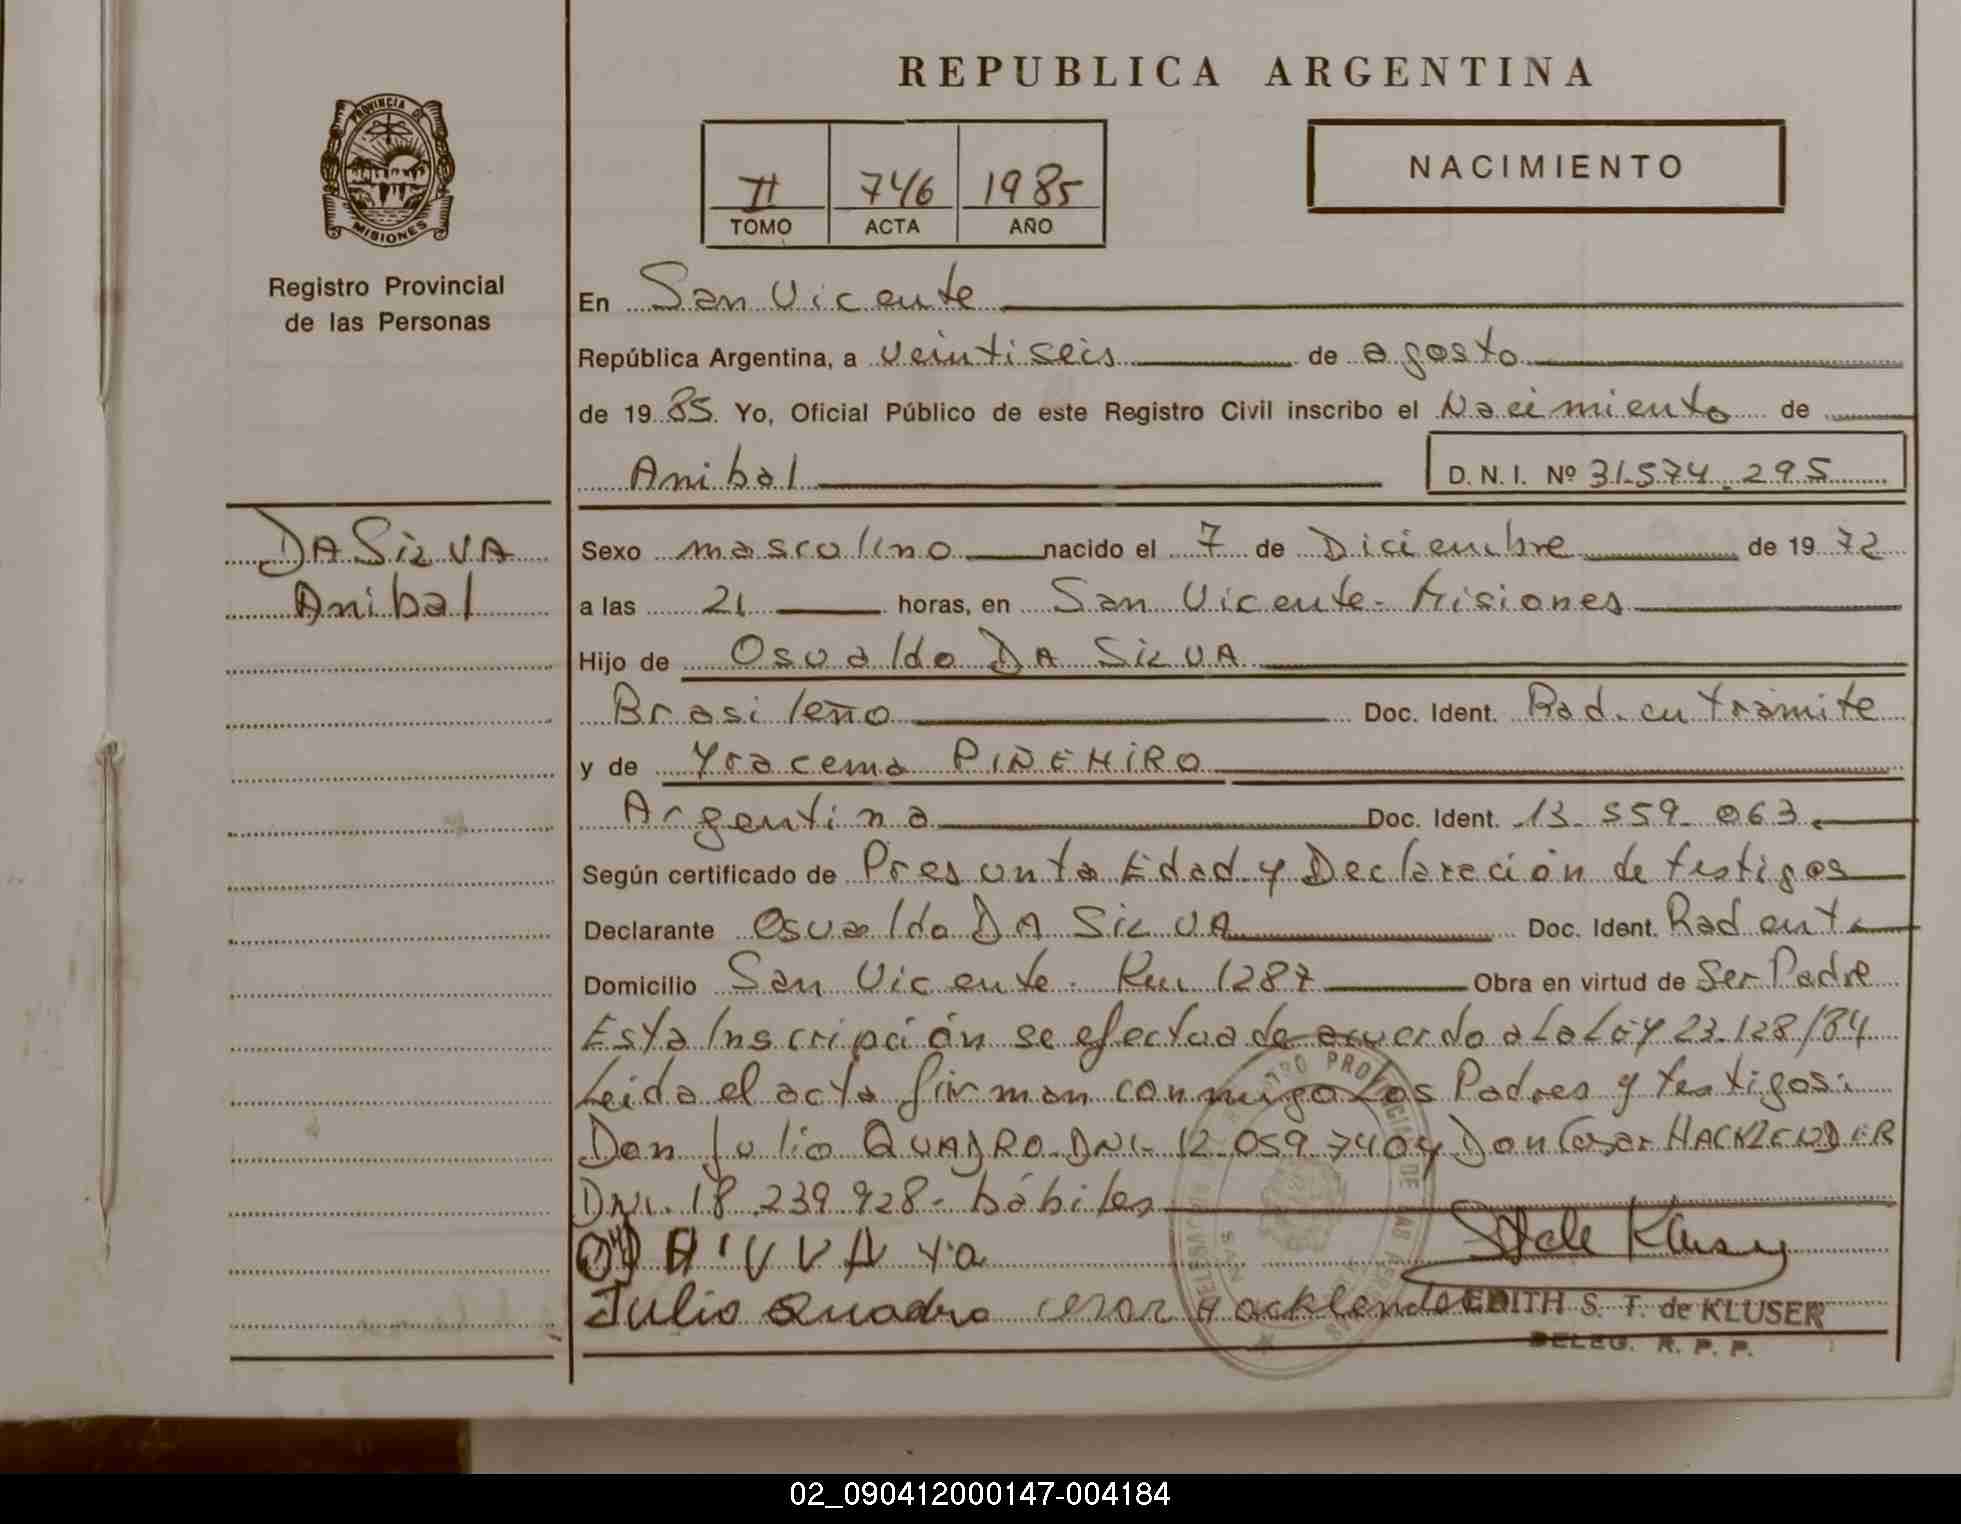 REPUBLICA ARGENTINA
PROVINCIA DE
MISIONES
Registro Provincial
de las Personas
II 746 1985
TOMO ACTA AÑO
NACIMIENTO
En San Vicente
República Argentina, a veintiseis de agosto
de 19 85. Yo, Oficial Público de este Registro Civil inscribo el Nacimiento de
Anibal D. N. I. Nº 31.574.295
DA SILVA
Anibal
Sexo masculino nacido el 7 de Diciembre de 19 72
a las 21 horas, en San Vicente - Misiones
Hijo de Osvaldo DA SILVA
Brasileño Doc. Ident. Rad. en tramite
y de Yracema PIÑEHIRO
Argentina Doc. Ident. 13.559.063
Según certificado de Presunta Edad y Declaración de testigos
Declarante Osvaldo DA SILVA Doc. Ident. Rad en t
Domicilio San Vicente - Km 1287 Obra en virtud de Ser Padre
Esta Inscripción se efectua de acuerdo a La Ley 23.128/84
Leida el acta firman conmigo Los Padres y testigos:
Don Julio QUADRO DNI. 12.059.740 y Don Cesar HACKLENDER
DNI. 18.239.928 - hábiles
Julio Quadro cesar Hacklender
EDITH S. T. de KLUSER
DELEG. R. P. P.
02_090412000147-004184